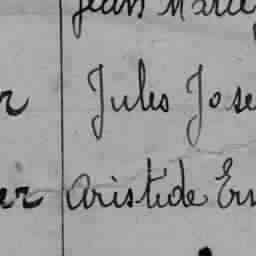 Jean Marie
r Jules Jose
er Aristide Ern